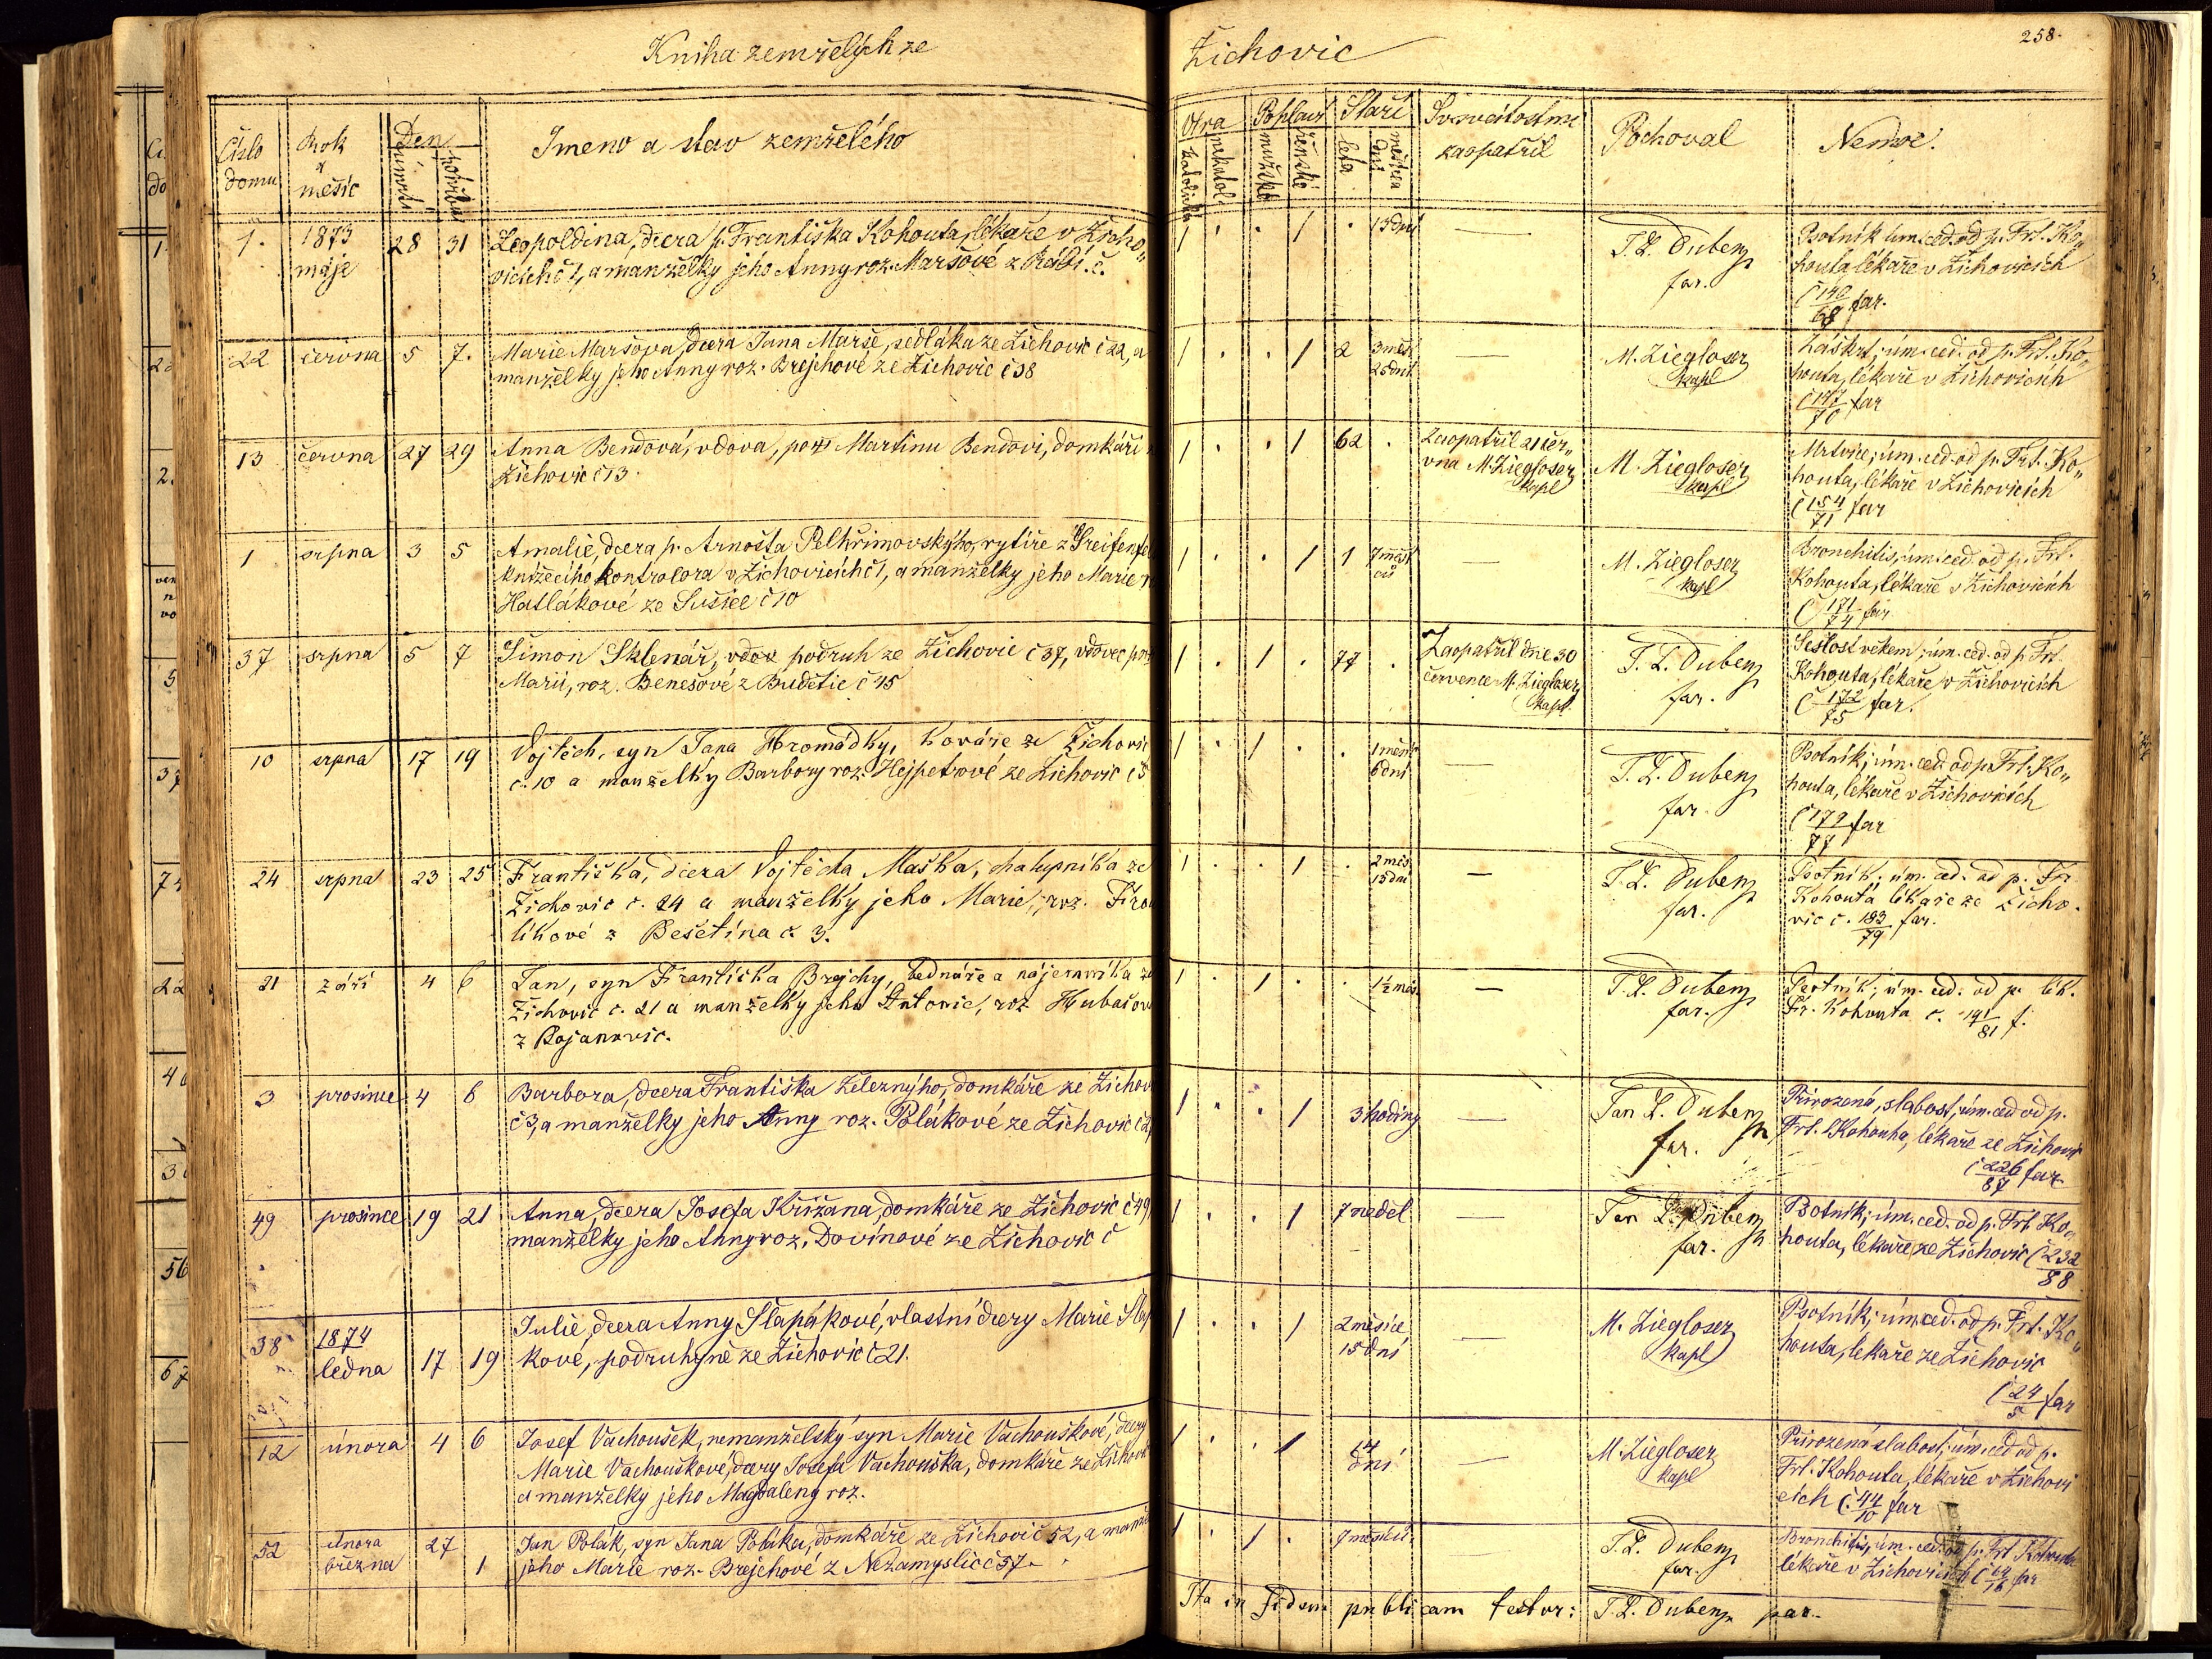 Kniha zemřelých ze
Žichovic
258.
Číslo domu
Rok a měsíc
Den
úmrtí
pohřbu
Jmeno a stav zemřelého
Víra
katolická
nekatol
Pohlaví
mužské
ženské
Staří
leta
měsíců
dní
Sv. svátostmi
zaopatřil
Pochoval
Nemoc.
1. 1873 máje 28 31
Leopoldina, dcera p. Františka Kohouta, lékaře v Žicho„
vicích č 1, a manželky jeho Anny roz. Maršové z Rábí. č.
1 . . 1 . 13 dní —
T. L. Dubenz
far.
Psotník úm. ced. od p. Frt. Ko„
houta lékaře v Žichovicích
č 140/68 far.
22 června 5 7.
Marie Maršova, dcera Jana Marše, sedláka ze Žichovic č 22, a
manželky jeho Anny roz. Brejchové ze Žichovic č 38
1 . . 1 2 3 měs. 25 dní —
M. Ziegloser
kapl
Záškrt; úm. ced. od p. Frt. Ko„
houta, lékaře v Žichovicích
č 147/70 far
13 června 27 29
Anna Bendová, vdova, poz. Martinu Bendovi, domkáři
Žichovic č 13.
1 . . 1 62 .
Zaopatřil 21 čer„
vna M. Ziegloser
kapl
M. Ziegloser
kapl
Mrtvice; úm. ced. od p. Frt. Ko„
houta, lékaře v Žichovicích
č 154/71 far
1 srpna 3 5
Amalie, dcera p. Arnošta Pelhřimovského, rytíře z Greifenfel
knížecího kontrolora v Žichovicích č 1, a manželky jeho Marie
Hatlákové ze Sušice č 10
1 . . 1 1 7 měsí
ců —
M. Ziegloser
kapl
Bronchitis, úm. ced. od p. Frt.
Kohouta, lékaře v Žichovicích
č 171/74 far
37 srpna 5 7
Šimon Sklenář, vdov podruh ze Žichovic č 37, vdovec po
Marii, roz. Benešové z Budětic č 15
1 . 1 . 77 .
Zaopatřil dne 30
července M. Ziegloser
kapl.
T. L. Dubenz
far.
Sešlost věkem; úm. ced. od p. Frt.
Kohouta, lékaře v Žichovicích
č 172/75 far.
10 srpna 17 19
Vojtěch, syn Jana Hromádky, kováře ze Žichovic
č. 10 a manželky Barbory roz. Hejpetrové ze Žichovic č 5
1 . 1 . . 1 měsíc
6 dní —
T. L. Dubenz
far.
Psotník; úm. ced. od p. Frt. Ko„
houta, lékaře v Žichovicích
č 179/77 far
24 srpna 23 25
Františka, dcera Vojtěcha Maška, chalupníka ze
Žichovic č. 24 a manželky jeho Marie, roz. Fro
líkové z Bešetína č. 3.
1 . . 1 . 2 měs.
15 dní —
T. L. Dubenz
far.
Psotník; úm. ced. od p. Fr.
Kohouta lékaře ze Žicho.
vic č. 183/79 far.
21 září 4 6
Jan, syn Františka Brejchy, bednáře a nájemníka ze
Žichovic č. 21 a manželky jeho Antonie, roz Hubačov
z Bojanovic.
1 . 1 . . 1½ měs. —
T. L. Dubenz
far.
Psotník; úm. ced. od p. lék.
Fr. Kohouta č. 191/81 f.
3 prosince 4 6
Barbora, dcera Františka Železnýho, domkáře ze Žichov
č 3, a manželky jeho Anny roz. Polákové ze Žichovic č 2
1 . . 1 3 hodiny —
Jan L. Dubenz
far.
Přirozená slabost, úm. ced od p.
Frt. Kohouta, lékaře ze Žichovic
č 226/87 far
49 prosince 19 21
Anna, dcera Josefa Křižana, domkáře ze Žichovic č 49
manželky jeho Anny roz. Dovínové ze Žichovic č
1 . . 1 7 neděl —
Jan L. Dubenz
far.
Psotník; úm. ced. od p. Frt. Ko„
houta, lékaře ze Žichovic č 232/88
38 1874
ledna 17 19
Julie, dcera Anny Šlapákové, vlastní dcery Marie Šlap
kové, podruhyně ze Žichovic č 21.
1 . . 1 2 měsíce
15 dní —
M. Ziegloser
kapl
Psotník; úm. ced. od p. Frt. Ko„
houta, lékaře ze Žichovic
č 24/5 far
12 února 4 6
Josef Vachoušek, nemanželský syn Marie Vachouškové, dcery
Marie Vachouškové, dcery Josefa Vachouška, domkáře ze Žichovic
a manželky jeho Magdaleny roz.
1 . . 1 14
dní —
M. Ziegloser
kapl
Přirozená slabost; úm. ced od p.
Frt. Kohouta, lékaře v Žichovi
cích č. 44/10 far
52 února
března 27 1
Jan Polák, syn Jana Poláka, domkáře ze Žichovic 52, a manže
jeho Marie roz. Brejchové z Nezamyslic č 57.
1 . 1 . 7 měsíců —
T. L. Dubenz
far.
Bronchitis, úm. ced. od p. Frt Kohouta
lékaře v Žichovicích
Ita in fidem publicam testor: T. L. Dubenz par.